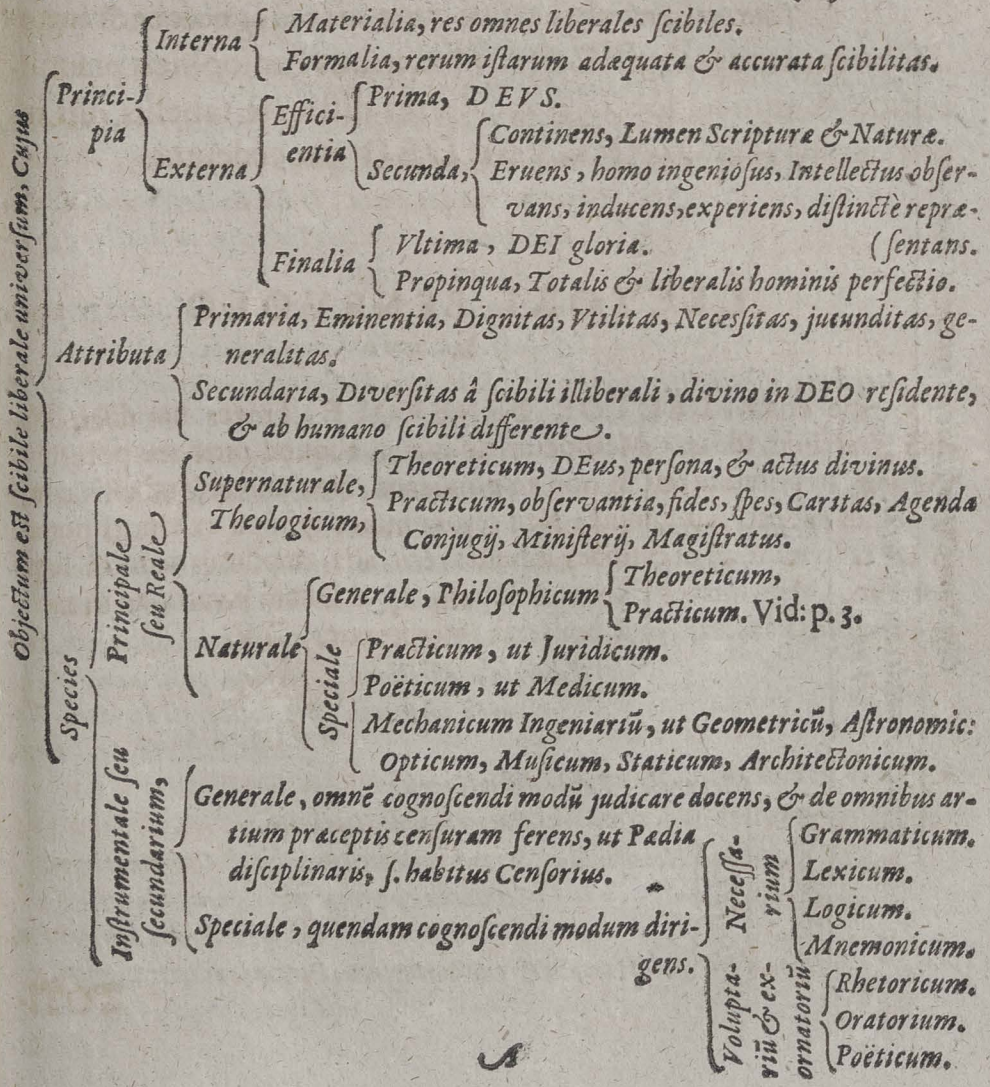 Objectum est ſcibile liberale univerſum, Cujus
Princi-
pia
Interna
Materialia, res omnes liberales ſcibiles.
Formalia, rerum iſtarum adæquata & accurata ſcibilitas.
Externa
Effici-
entia
Prima, DEVS.
Secunda,
Continens, Lumen Scripturæ & Naturæ.
Eruens, homo ingenioſus, Intellectus obſer-
vans, inducens, experiens, diſtinctè repræ-
(ſentans.
Finalia
Vltima, DEI gloria.
Propinqua, Totalis & liberalis hominis perfectio.
Attributa
Primaria, Eminentia, Dignitas, Vtilitas, Neceſsitas, jucunditas, ge-
neralitas.
Secundaria, Diverſitas â ſcibili illiberali, divino in DEO reſidente,
& ab humano ſcibili differente.
Species
Principale
ſeu Reale
Supernaturale,
Theologicum,
Theoreticum, DEus, perſona, & actus divinus.
Practicum, obſervantia, fides, ſpes, Caritas, Agenda
Conjugij, Miniſterij, Magiſtratus.
Naturale
Generale, Philoſophicum
Theoreticum,
Practicum. Vid: p. 3.
Speciale
Practicum, ut Juridicum.
Poëticum, ut Medicum.
Mechanicum Ingeniariū, ut Geometricū, Aſtronomic:
Opticum, Muſicum, Staticum, Architectonicum.
Inſtrumentale ſeu
ſecundarium,
Generale, omnē cognoſcendi modū judicare docens, & de omnibus ar-
tium præceptis cenſuram ferens, ut Pædia
diſciplinaris, ſ. habitus Cenſorius.
Speciale, quendam cognoſcendi modum diri-
gens.
Neceſſa-
rium
Grammaticum.
Lexicum.
Logicum.
Mnemonicum.
Volupta-
riū & ex-
ornatoriū
Rhetoricum.
Oratorium.
Poëticum.